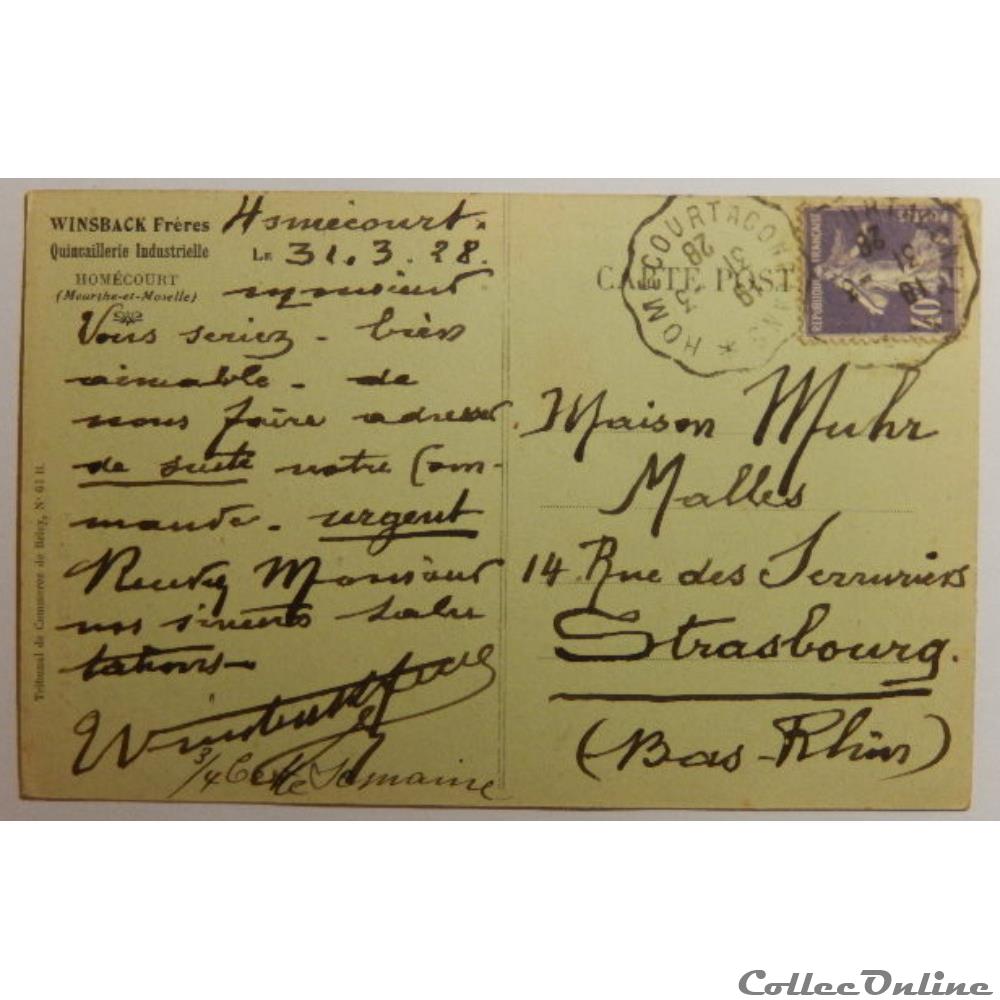 WINSBACK Frères
Quincaillerie Industrielle
HOMÉCOURT
(Meurthe-et-Moselle)
Tribunal de Commerce de Briey, N° 61 B.
Homécourt.
LE 31.3.28.
Monsieur
Vous seriez bien
aimable de
nous faire adresser
de suite notre Com-
mande. urgent
Recevez Monsieur
nos sincères salu
tations
Winsback frères
3/4 Cette Semaine
CARTE POST
HOMECOURT A CON
31
3
28
REPUBLIQUE FRANÇAISE
POSTES
40
Maison Muhr
Malles
14 Rue des Serruriers
Strasbourg.
(Bas-Rhin)
CollecOnline